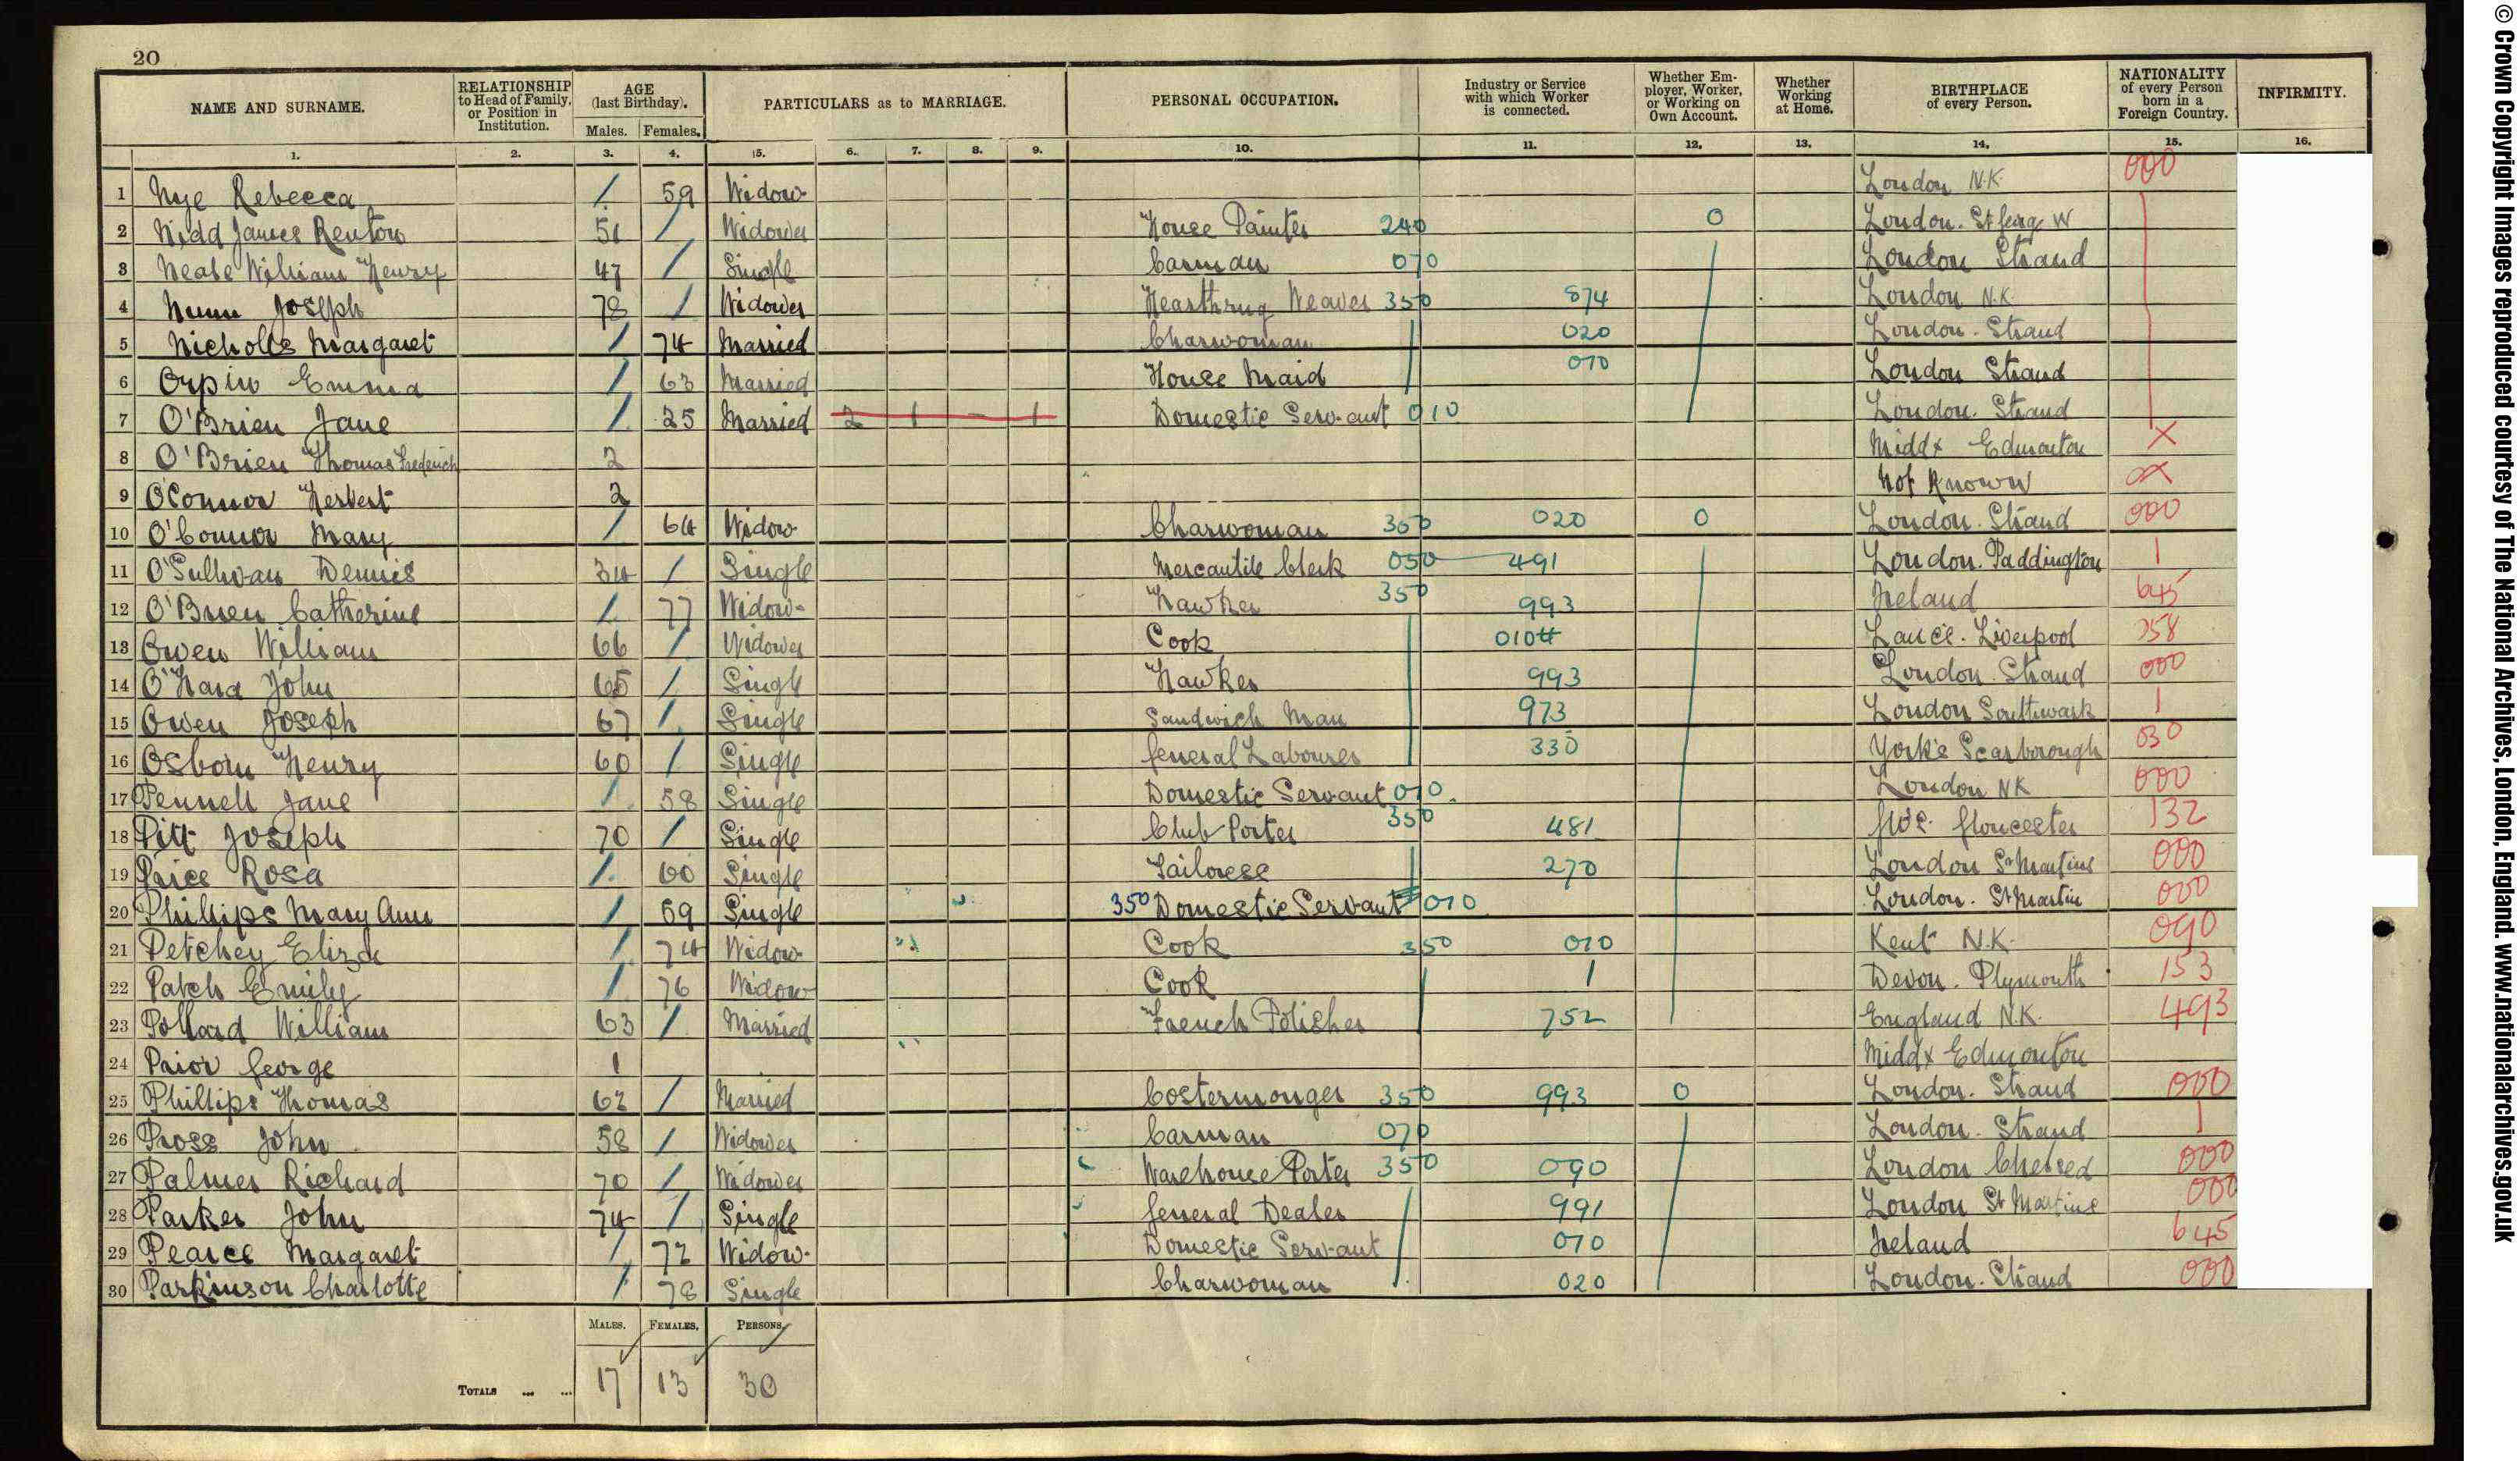 20
NAME AND SURNAME. RELATIONSHIP to Head of Family, or Position in Institution. AGE (last Birthday). Males. Females. PARTICULARS as to MARRIAGE. PERSONAL OCCUPATION. Industry or Service with which Worker is connected. Whether Employer, Worker, or Working on Own Account. Whether Working at Home. BIRTHPLACE of every Person. NATIONALITY of every Person born in a Foreign Country. INFIRMITY.
1. 2. 3. 4. 5. 6. 7. 8. 9. 10. 11. 12. 13. 14. 15. 16.
1 Nye Rebecca / 59 Widow London N.K 000
2 Nidd James Renton 51 / Widower House Painter 240 0 London. St Geog W
3 Neale William Henry 47 / Single Carman 070 London Strand
4 Nunn Joseph 78 / Widower Hearthrug Weaver 350 874 London N.K
5 Nicholls Margaret / 74 Married Charwoman 020 London. Strand
6 Orpin Emma / 63 Married House Maid 010 London Strand
7 O'Brien Jane / 25 Married 2 1 - 1 Domestic Servant 010 London. Strand
8 O'Brien Thomas Frederick 2 Middx Edmonton X
9 O'Connor Herbert 2 Not Known
10 O'Connor Mary / 64 Widow Charwoman 350 020 0 London. Strand 000
11 O'Sullivan Dennis 34 / Single Mercantile Clerk 050 491 London. Paddington 1
12 O'Brien Catherine / 77 Widow Hawker 350 993 Ireland 645
13 Owen William 66 / Widower Cook 0104 Lancs. Liverpool 258
14 O'Hara John 65 / Single Hawker 993 London. Strand 000
15 Owen Joseph 67 / Single Sandwich Man 973 London Southwark 1
16 Osborn Henry 60 / Single General Labourer 330 York's Scarborough 030
17 Pennell Jane / 58 Single Domestic Servant 010 London NK 000
18 Pitt Joseph 70 / Single Club Porter 350 481 Glos. Gloucester 132
19 Price Rosa / 60 Single Tailoress 270 London St Martins 000
20 Phillips Mary Ann / 59 Single 350 Domestic Servant 010 London. St Martin 000
21 Petchey Eliza / 74 Widow Cook 350 010 Kent N.K. 090
22 Patch Emily / 76 Widow Cook 1 Devon. Plymouth 153
23 Pollard William 63 / Married French Polisher 752 England N.K. 493
24 Prior George 1 Middx Edmonton
25 Phillips Thomas 62 / Married Costermonger 350 993 0 London. Strand 000
26 Pross John 58 / Widower Carman 070 London. Strand 1
27 Palmer Richard 70 / Widower Warehouse Porter 350 090 London Chelsea 000
28 Parker John 74 / Single General Dealer 991 London St Martins 000
29 Pearce Margaret / 72 Widow Domestic Servant 010 Ireland 645
30 Parkinson Charlotte / 78 Single Charwoman 020 London. Strand 000
MALES. FEMALES. PERSONS.
TOTALS ... ... 17 13 30
© Crown Copyright Images reproduced courtesy of The National Archives, London, England. www.nationalarchives.gov.uk